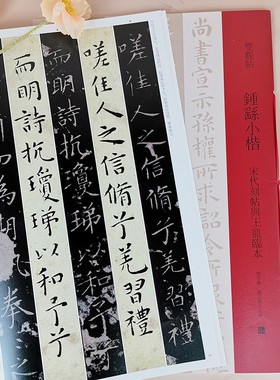 鍾繇小楷
宋代刻帖與王寵臨本
尚書宣示孫權所求詔令所
嗟佳人之信脩兮羌習禮
嗟佳人之信脩兮羌習禮
而明詩抗瓊珶以和予兮
而明詩抗瓊珶以和予兮